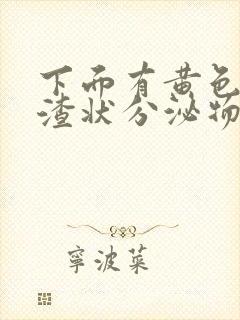 下而有黄色
渣状分泌物
寧波菜